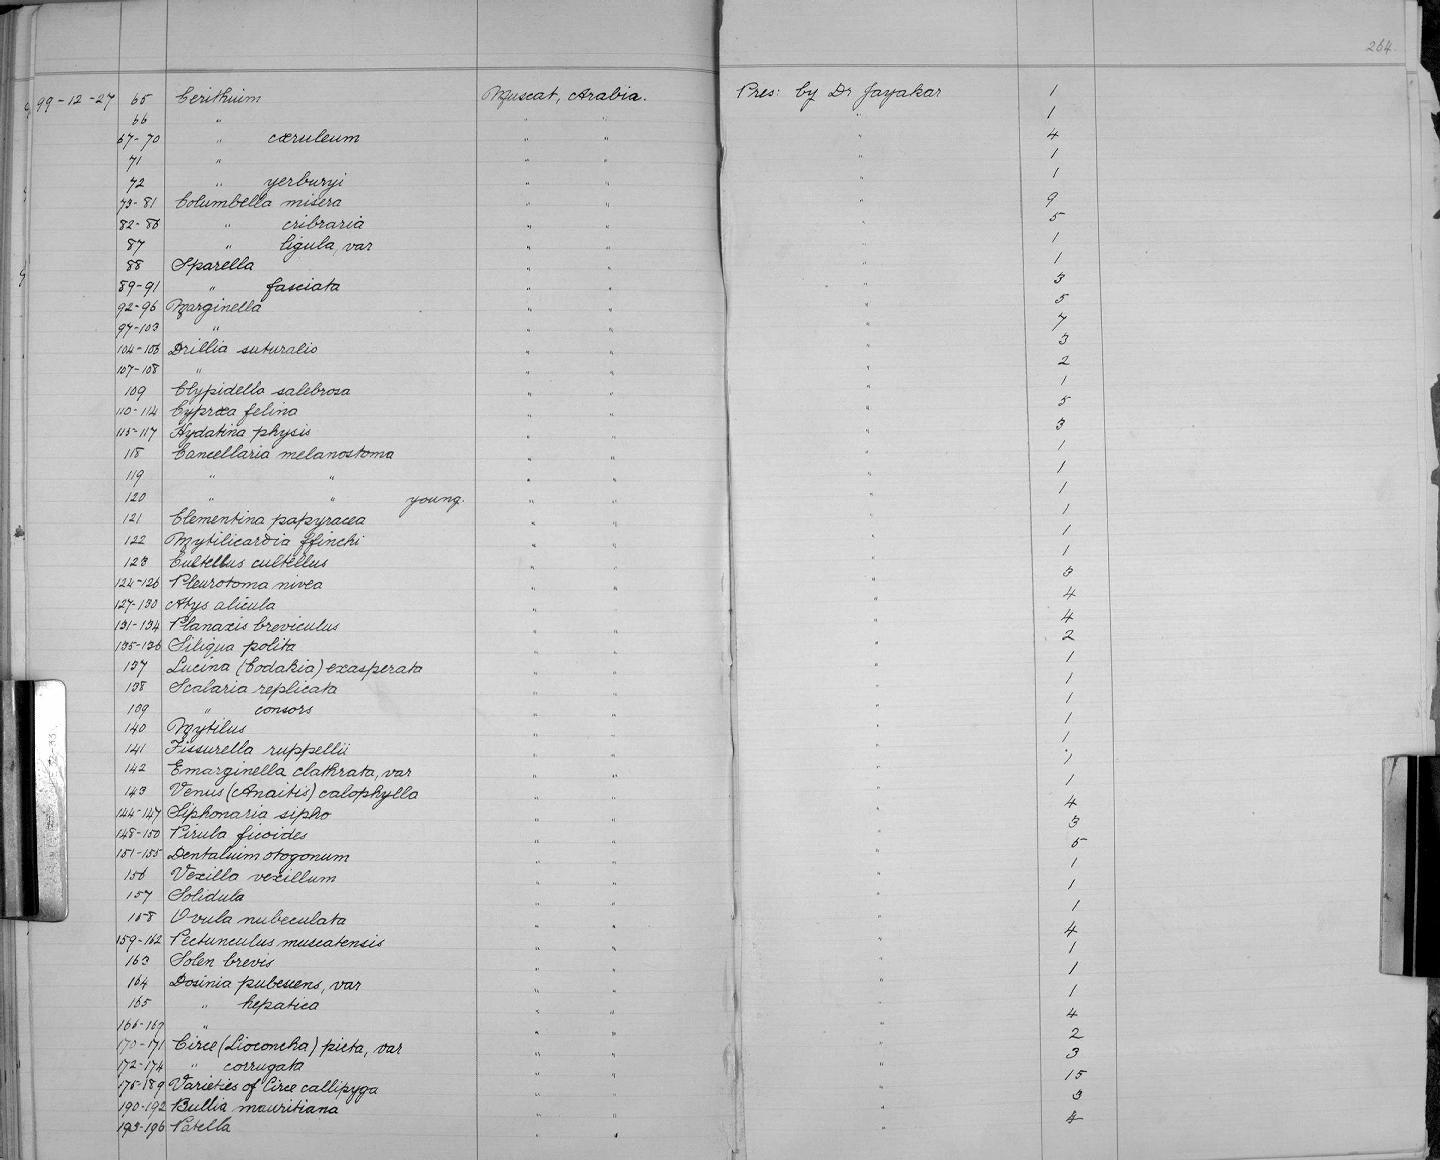 264
99-12-27 65 Cerithium Muscat, Arabia. Pres: by Dr Jayakar 1
66 " " " " 1
67-70 " cæruleum " " " 4
71 " " " " 1
72 " yerburyi " " " 1
73-81 Columbella misera " " " 9
82-86 " cribraria " " " 5
87 " ligula, var " " " 1
88 Sparella " " " 1
89-91 " fasciata " " " 3
92-96 Marginella " " " 5
97-103 " " " " 7
104-106 Drillia suturalis " " " 3
107-108 " " " " 2
109 Clypidella salebrosa " " " 1
110-114 Cypræa felina " " " 5
115-117 Hydatina physis " " " 3
118 Cancellaria melanostoma " " " 1
119 " " " " " 1
120 " " young. " " " 1
121 Clementina papyracea " " " 1
122 Mytilicardia ffinchi " " " 1
123 Cultellus cultellus " " " 1
124-126 Pleurotoma nivea " " " 3
127-130 Atys alicula " " " 4
131-134 Planaxis breviculus " " " 4
135-136 Siliqua polita " " " 2
137 Lucina (Codakia) exasperata " " " 1
138 Scalaria replicata " " " 1
139 " consors " " " 1
140 Mytilus " " " 1
141 Fissurella ruppellii " " " 1
142 Emarginella clathrata, var " " " 1
143 Venus (Anaitis) calophylla " " " 1
144-147 Siphonaria sipho " " " 4
148-150 Pirula ficoides " " " 3
151-155 Dentalium otogonum " " " 5
156 Vexilla vexillum " " " 1
157 Solidula " " " 1
158 Ovula nubeculata " " " 1
159-162 Pectunculus muscatensis " " " 4
163 Solen brevis " " " 1
164 Dosinia pubescens, var " " " 1
165 " hepatica " " " 1
166-169 " " " " 4
170-171 Circe (Lioconcha) picta, var " " " 2
172-174 " corrugata " " " 3
175-189 Varieties of Circe callipyga " " " 15
190-192 Bullia mauritiana " " " 3
193-196 Patella " " " 4